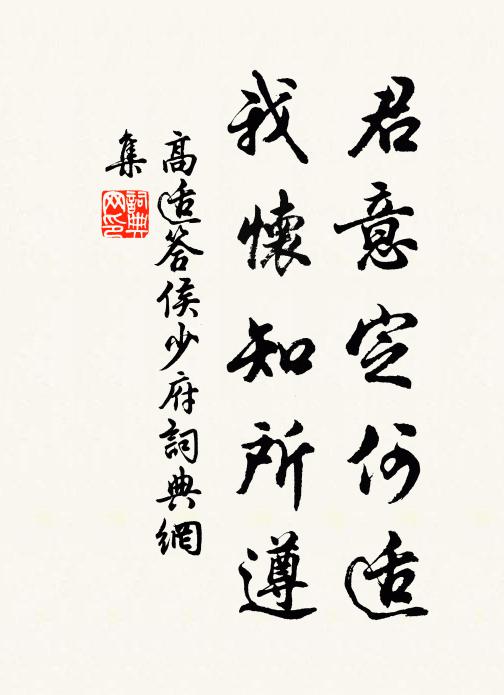 君意定何适
我懷知所遵
高适答侯少府詞典網
集
詞典网印